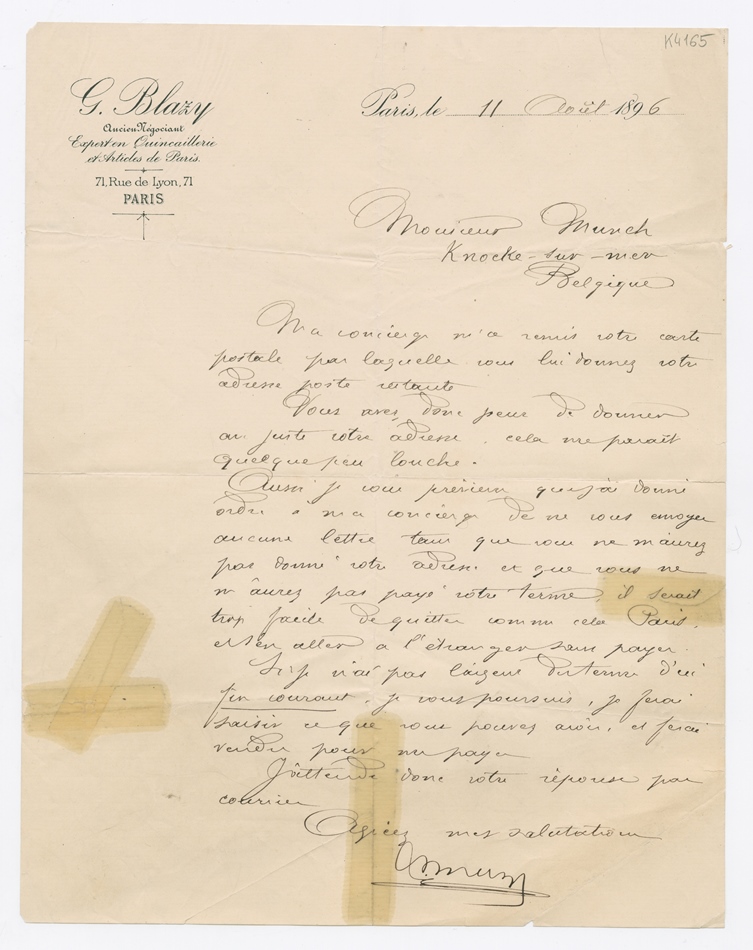 K4165
G. Blazy
Ancien Négociant
Expert en Quincaillerie
et Articles de Paris.
71, Rue de Lyon, 71
PARIS
Paris, le 11 Août 1896
Monsieur Munch
Knocke-sur-mer
Belgique
Ma concierge m'a remis votre carte
postale par laquelle vous lui donnez votre
adresse poste restante
Vous avez donc peur de donner
au juste votre adresse. cela me parait
quelque peu louche.
Aussi je vous préviens que j'ai donné
ordre à ma concierge de ne vous envoyer
aucune lettre tant que vous ne m'aurez
pas donné votre adresse et que vous ne
m'aurez pas payé votre terme, il serait
trop facile de quitter comme cela Paris,
et s'en aller a l'étranger sans payer.
Si je n'ai pas l'argent du terme d'ici
fin courant, je vous poursuis, je ferai
saisir ce que vous pouvez avoir, et ferai
vendre pour me payer
J'attends donc votre réponse par
courrier
Agréez mes salutations